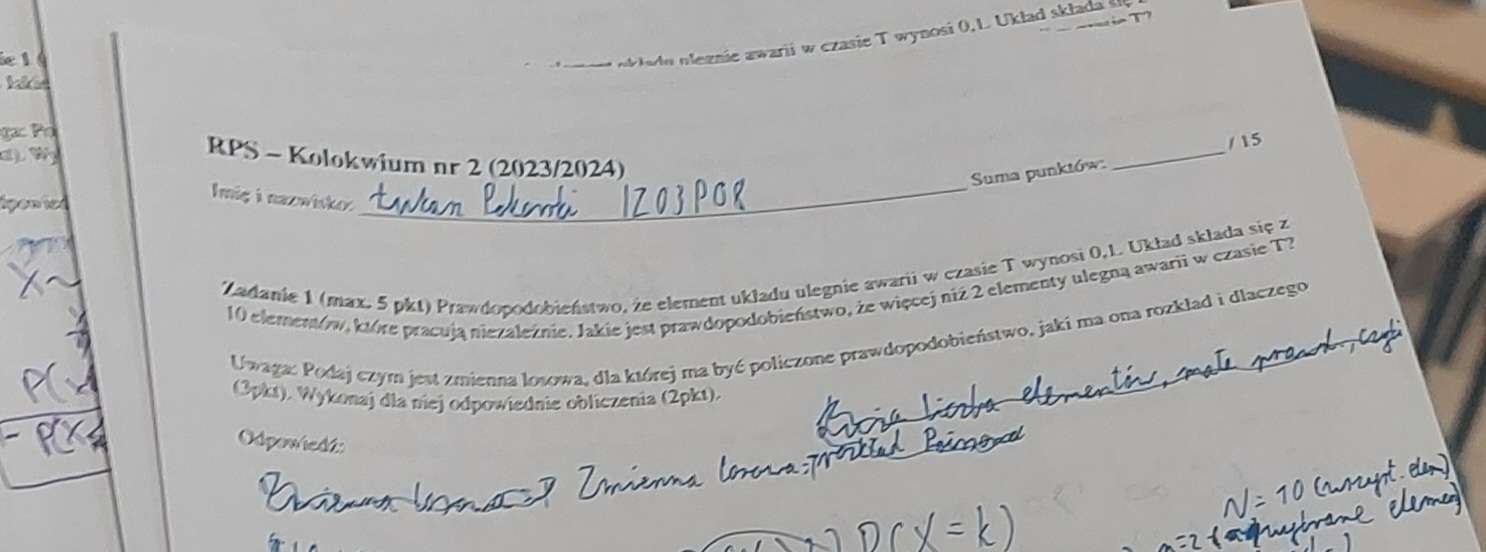 układu ulegnie awarii w czasie T wynosi 0,1. Układ składa się
T?
RPS – Kolokwium nr 2 (2023/2024)
Suma punktów: / 15
Imię i nazwisko: 1Z03P08
Zadanie 1 (max. 5 pkt) Prawdopodobieństwo, że element układu ulegnie awarii w czasie T wynosi 0,1. Układ składa się z
10 elementów, które pracują niezależnie. Jakie jest prawdopodobieństwo, że więcej niż 2 elementy ulegną awarii w czasie T?
Uwaga: Podaj czym jest zmienna losowa, dla której ma być policzone prawdopodobieństwo, jaki ma ona rozkład i dlaczego
(3pkt). Wykonaj dla niej odpowiednie obliczenia (2pkt).
Odpowiedź:
liczba elementów, małe prawd., czyli
Zmienna losowa: rozkład
P(X=k)
N=10 (wszyst. elem)
n=2
X~
P(X
- P(X≤